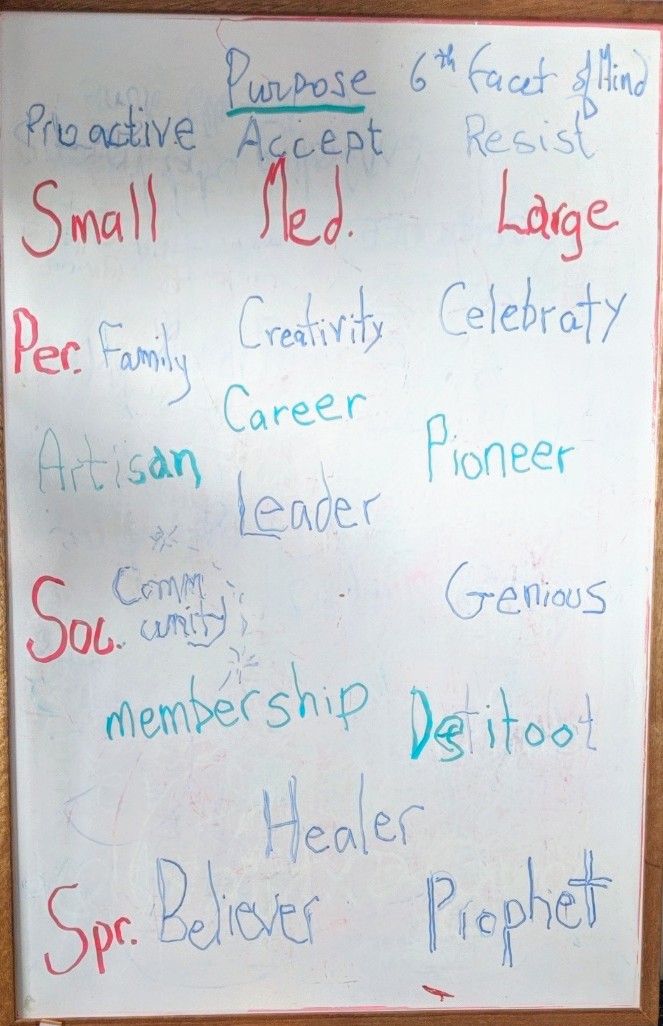 Purpose 6th facet of Mind
Proactive Accept Resist
Small Med. Large
Per. Family Creativity Celebraty
Career
Artisan Pioneer
Leader
Soc. Comm Genious
unity
membership Destitoot
Healer
Spr. Believer Prophet